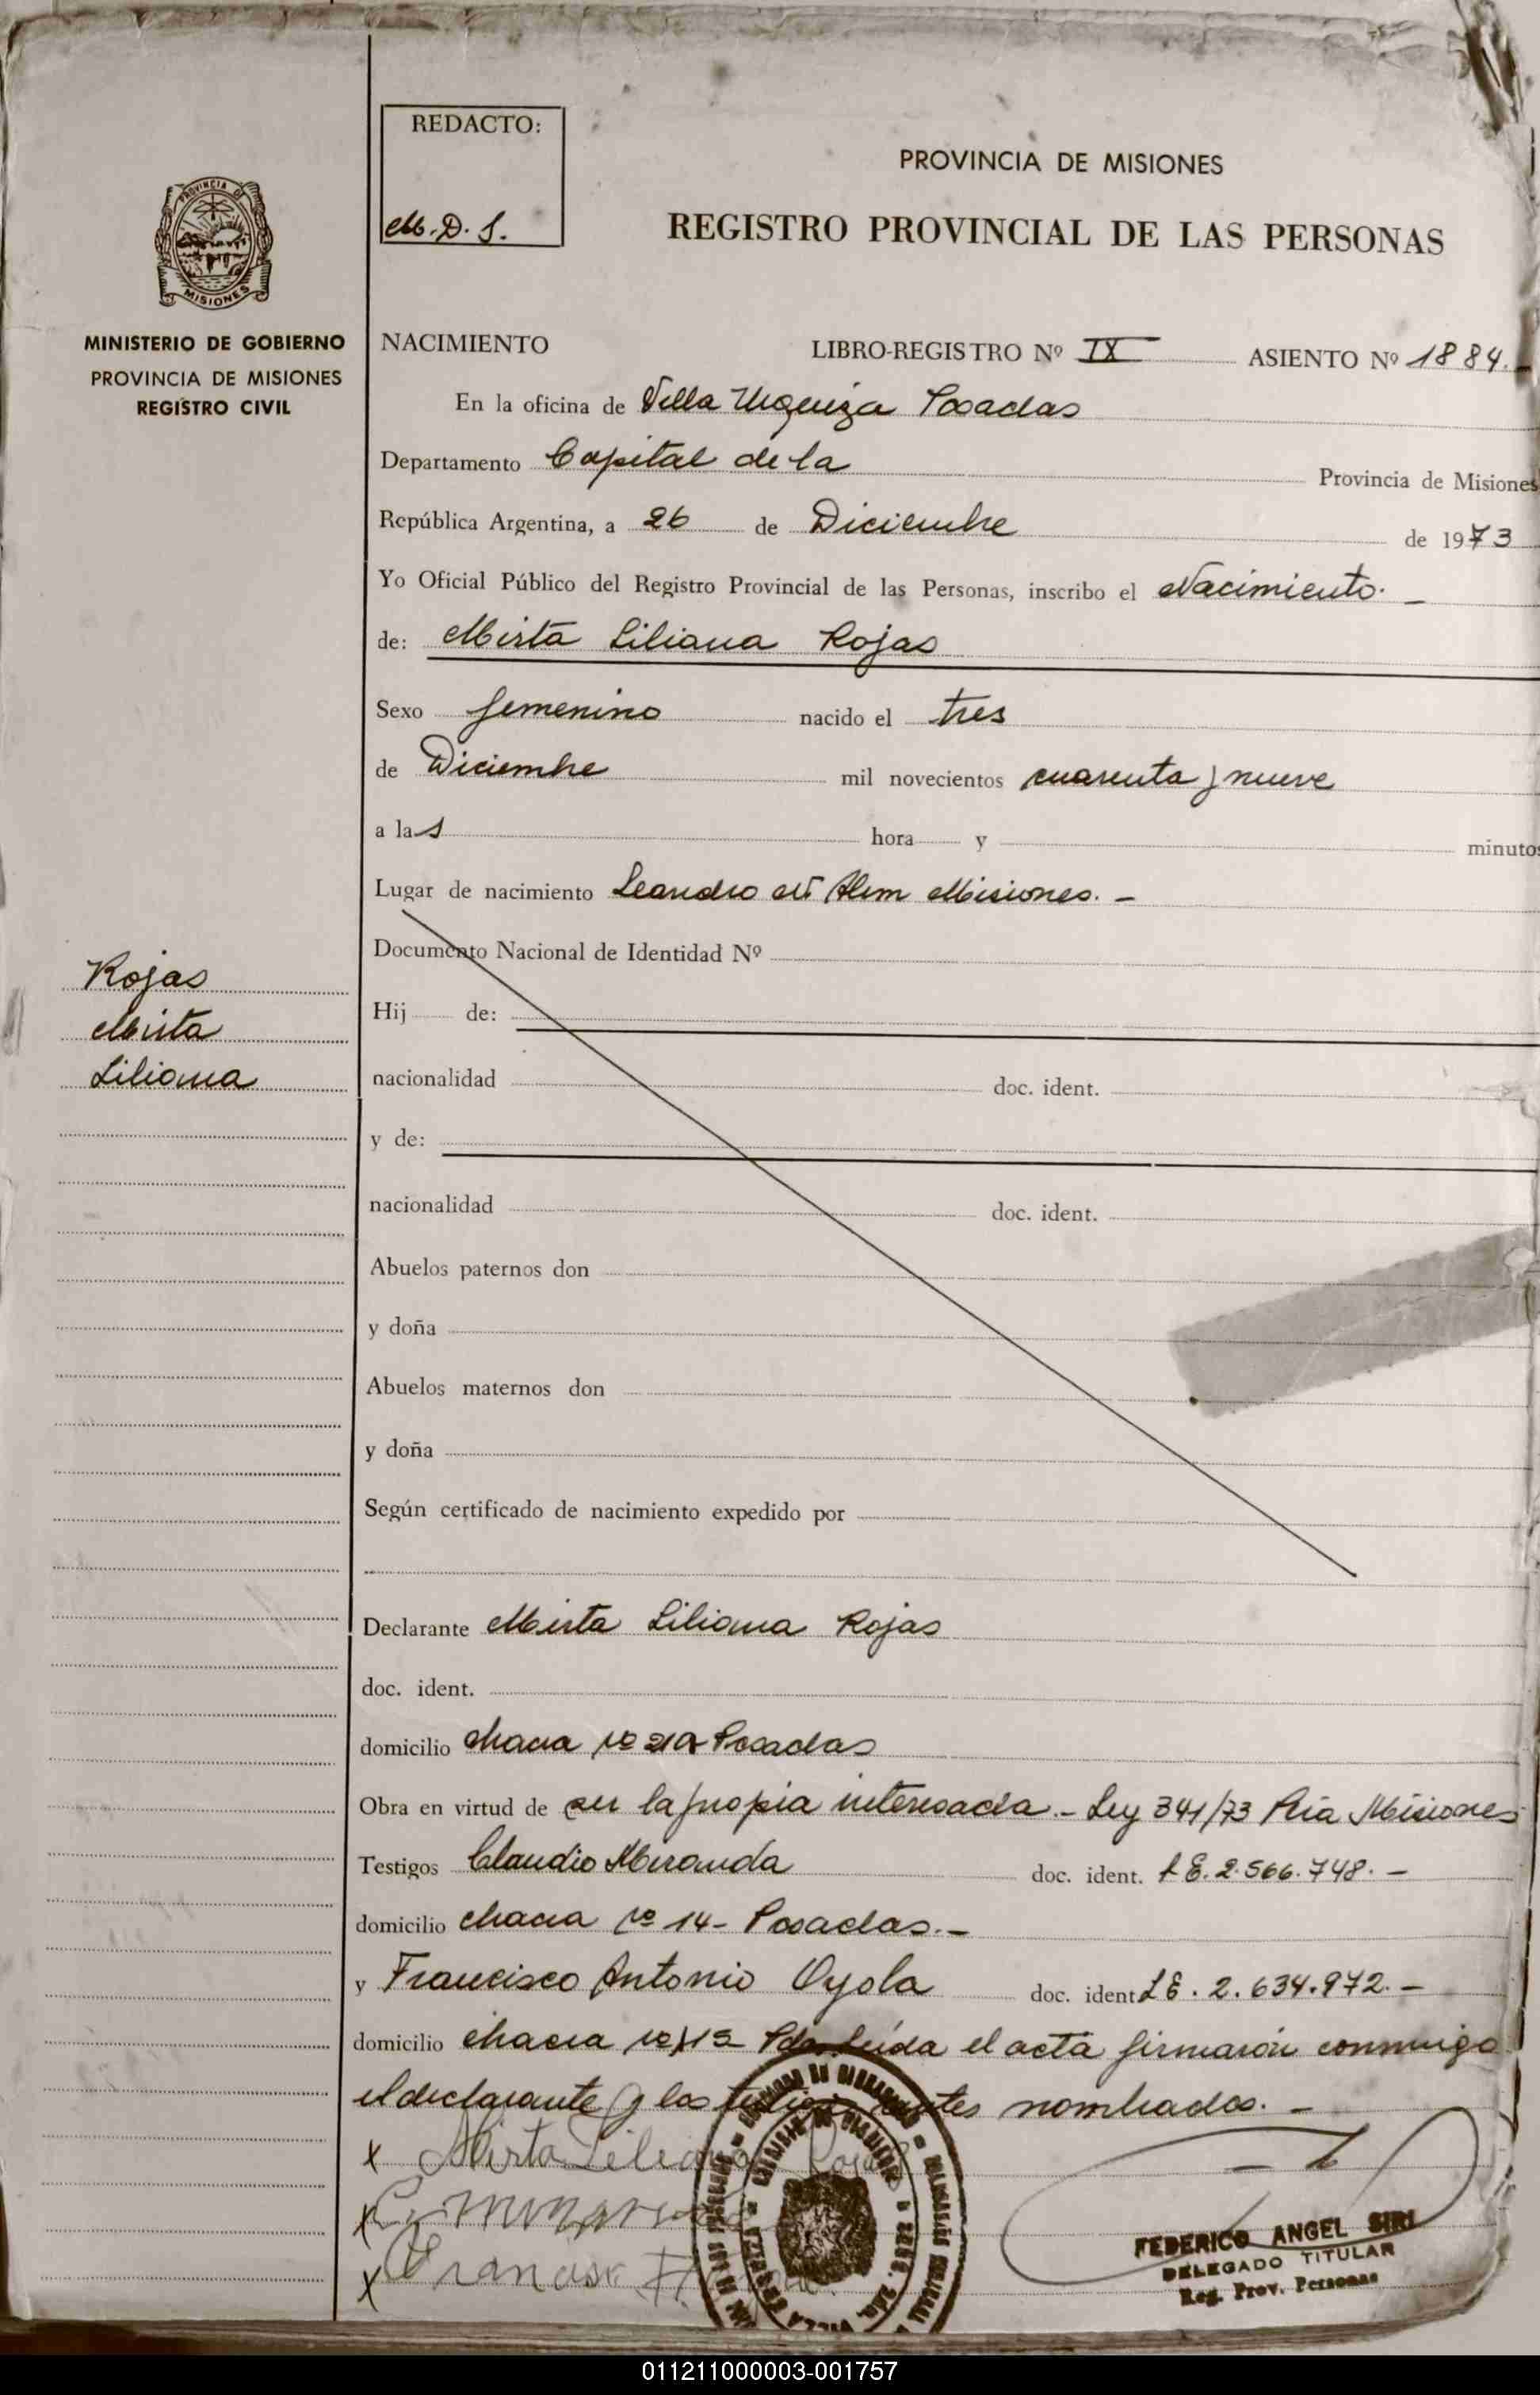 REDACTO:
M. D. S.
PROVINCIA DE MISIONES
REGISTRO PROVINCIAL DE LAS PERSONAS
PROVINCIA DE
MISIONES
MINISTERIO DE GOBIERNO
PROVINCIA DE MISIONES
REGISTRO CIVIL
NACIMIENTO LIBRO-REGISTRO Nº IX ASIENTO Nº 1884.-
En la oficina de Villa Urquiza Posadas
Departamento Capital de la Provincia de Misiones
República Argentina, a 26 de Diciembre de 1973
Yo Oficial Público del Registro Provincial de las Personas, inscribo el Nacimiento.-
de: Mirta Liliana Rojas
Sexo femenino nacido el tres
de Diciembre mil novecientos cuarenta y nueve
a las hora y minutos
Lugar de nacimiento Leandro N Alem Misiones.-
Documento Nacional de Identidad Nº
Rojas
Mirta
Liliana
Hij de:
nacionalidad doc. ident.
y de:
nacionalidad doc. ident.
Abuelos paternos don
y doña
Abuelos maternos don
y doña
Según certificado de nacimiento expedido por
Declarante Mirta Liliana Rojas
doc. ident.
domicilio chacra Nº Posadas
Obra en virtud de ser la propia interesada.- Ley 341/73 Pcia Misiones
Testigos Claudio Miranda doc. ident. L E. 2.566.748.-
domicilio chacra Nº 14- Posadas.-
y Francisco Antonio Oyola doc. ident L E. 2.634.972.-
domicilio chacra Pdas leída el acta firmaron conmigo
el declarante y los testigos antes nombrados.-
x Mirta Liliana Rojas
x
x
FEDERICO ANGEL SIRI
DELEGADO TITULAR
Reg. Prov. Personas
011211000003-001757